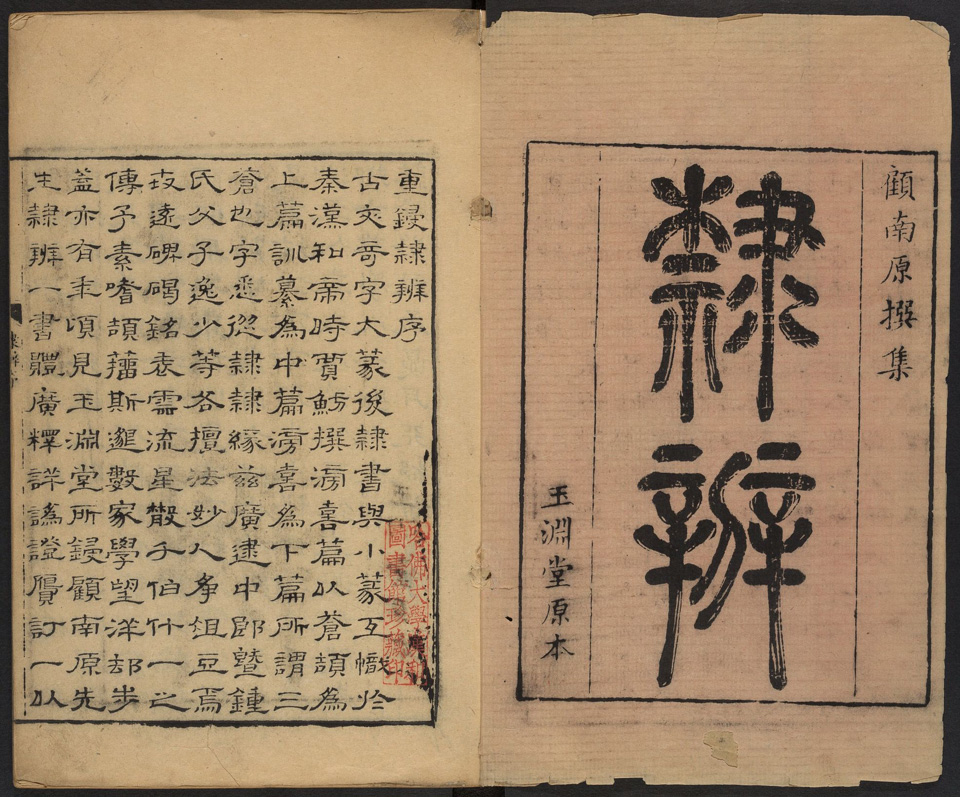 顧南原撰集
隸辨
玉淵堂原本
重鋟隸辨序
古文奇字大篆後隸書與小篆互幟於
秦漢和帝時賈魴撰滂喜篇以蒼頡為
上篇訓纂為中篇滂喜為下篇所謂三
蒼也字悉從隸隸緣茲廣逮中郎暨鍾
氏父子逸少等各擅法妙人爭俎豆焉
攷遠碑碣銘表雲流星散千伯什一之
傳予素嗜頡籀斯邈數家學望洋却步
蓋亦有年頃見玉淵堂所鋟顧南原先
生隸辨一書體廣釋詳譌證贗訂一以
哈佛大學漢和
圖書館珍藏印